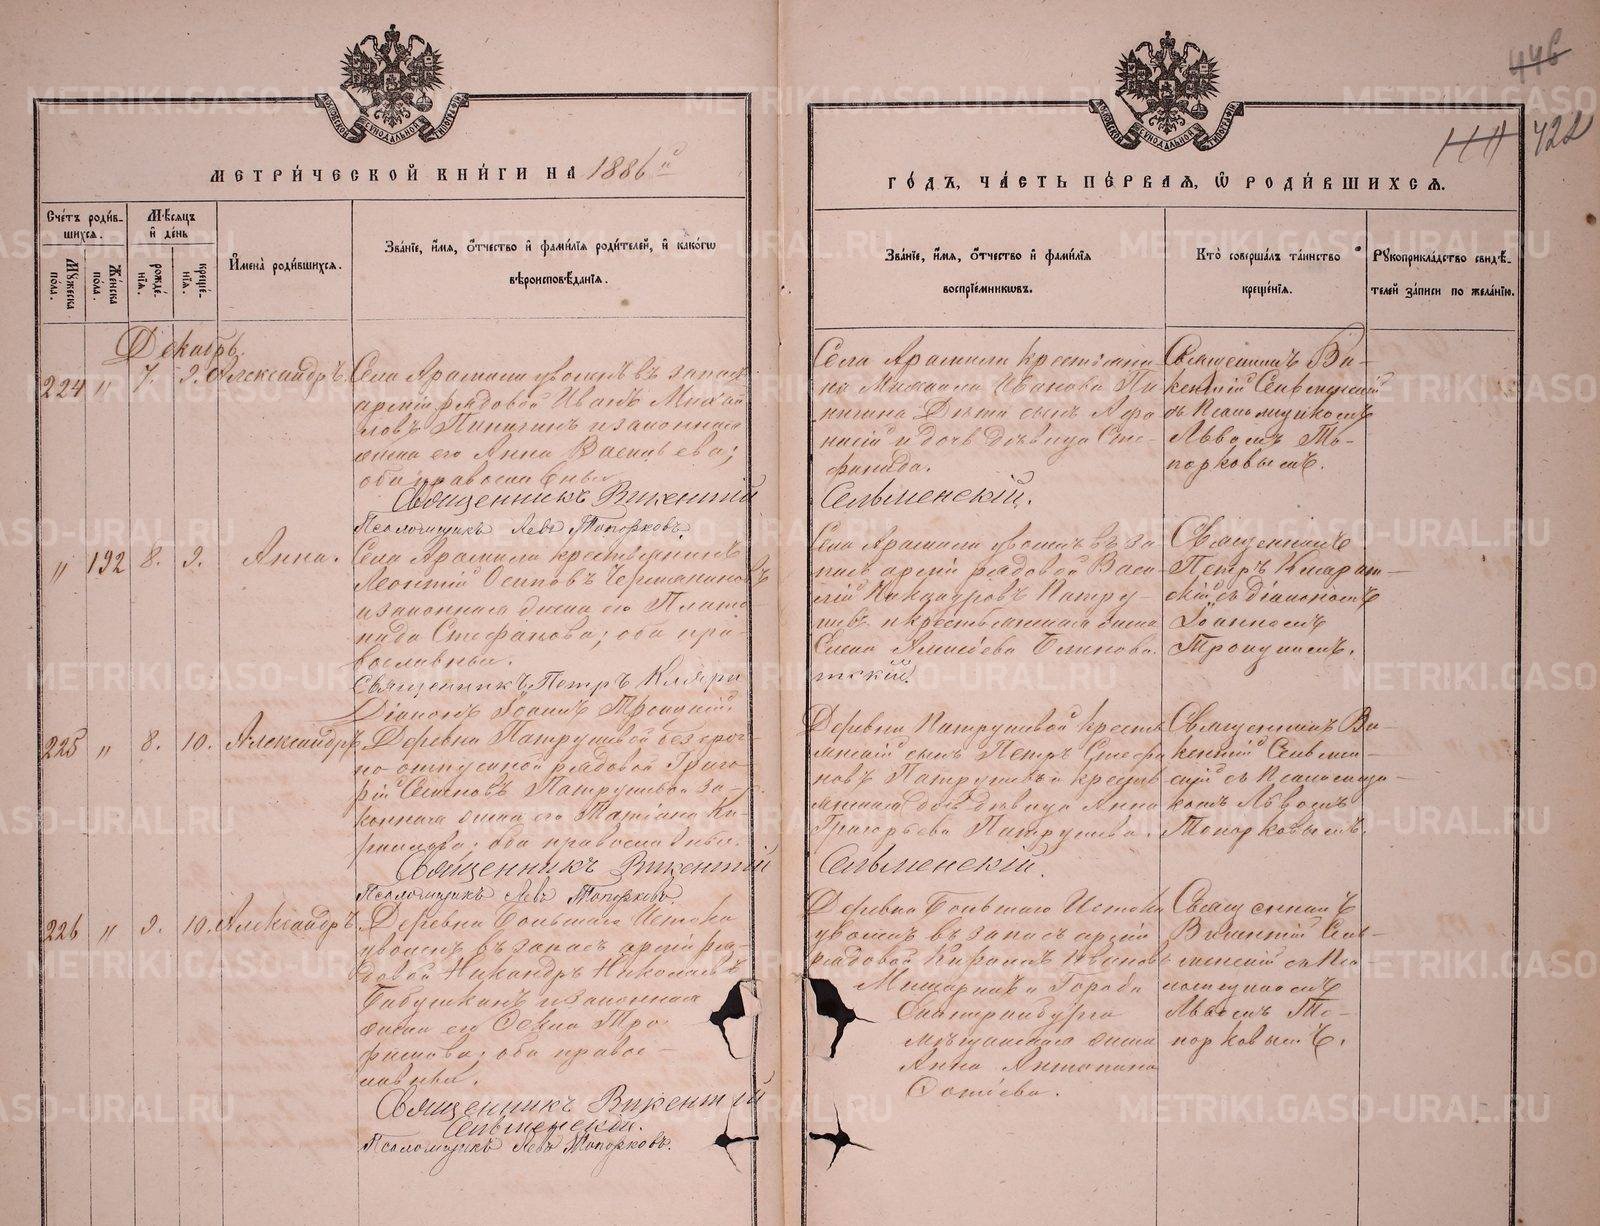 446
422
МЕТРИ́ЧЕСКОЙ КНИ́ГИ НА 1886й
ГО́ДЪ, ЧА́СТЬ ПЕ́РВАЯ, Ѡ҆ РОДИ́ВШИХСЯ.
Сче́тъ роди́в-
шихся.
Мѣ́сяцъ
и҆ де́нь
Му́жеска
по́ла.
Же́нска
по́ла.
рожде́-
нїѧ.
креще́-
нїѧ.
И҆мена̀ роди́вшихсѧ.
Зва́нїе, и҆́мя, ѻ҆́тчество и҆ фами́лїѧ роди́телей, и҆ како́гѡ
вѣроисповѣ́данїѧ.
Зва́нїе, и҆́мя, ѻ҆́тчество и҆ фами́лїѧ
воспрїе́мникѡвъ.
Кто̀ соверша́лъ та́инство
креще́нїѧ.
Рꙋкоприкла́дство свидѣ́-
телей за́писи по жела́нїю.
Декабрь.
224 " 7. 9. Александръ.
Села Арамили уволенъ въ запас
армии рядовой Иванъ Михай
ловъ Пиничинъ и законная
жена его Анна Васильева;
оба православные
Священникъ Викентий
Псаломщикъ Левъ Топорковъ.
Села Арамили крестьяни
на Михаила Иванова Пи
ничина Дети сынъ Афа
насий и дочь девица Сте-
фанида.
Сельменский.
Священникъ Ви-
кентий Сельменский
съ Псаломщикомъ
Львомъ То-
порковымъ.
" 192 8. 9. Анна.
Села Арамили крестьянинъ
Леонтий Осиповъ Чермяниновъ
и законная жена его Плато-
нида Стефанова; оба пра-
вославные.
Священникъ Петръ Кляри
Диаконъ Иоаннъ Троицкий
Села Арамили уволенъ въ за-
пасъ армии рядовой Васи-
лий Никандровъ Патру-
шевъ и крестьянская жена
Елена Алексеева Блинова.
тский.
Священникъ
Петръ Кларит-
ский съ диакономъ
Иоанномъ
Троицкимъ.
225 " 8. 10. Александръ
Деревни Патрушевой безсроч-
но-отпускной рядовой Григо-
рий Семеновъ Патрушевъ и за-
конная жена его Татиана Ки-
рилова; оба православные.
Священникъ Викентий
Псаломщикъ Левъ Топорковъ.
Деревни Патрушевой кресть
янский сынъ Петръ Стефа
новъ Патрушевъ и кресть
янская дочь девица Анна
Григорьева Патрушева.
Сельменский.
Священникъ Ви-
кентий Сельмен-
ский съ Псаломщи-
комъ Львомъ
Топорковымъ.
226 " 9. 10. Александръ
Деревни Большаго Истока
уволенъ въ запасъ армии ря-
довой Никандръ Николаевъ
Бабушкинъ и законная
жена его Фекла Тро
фимова; оба правос-
лавные.
Священникъ Викентий
Сельменский.
Псаломщикъ Левъ Топорковъ.
Деревни Большаго Истока
уволенъ въ запасъ армии
рядовой Кирилъ Ивановъ
Мещарин и Города
Екатеринбурга
мещанская жена
Анна Антонина
Фотиева.
Священникъ
Викентий Сель-
менский съ Пса-
ломщикомъ
Львомъ То-
порковымъ.
METRIKI.GASO-URAL.RU